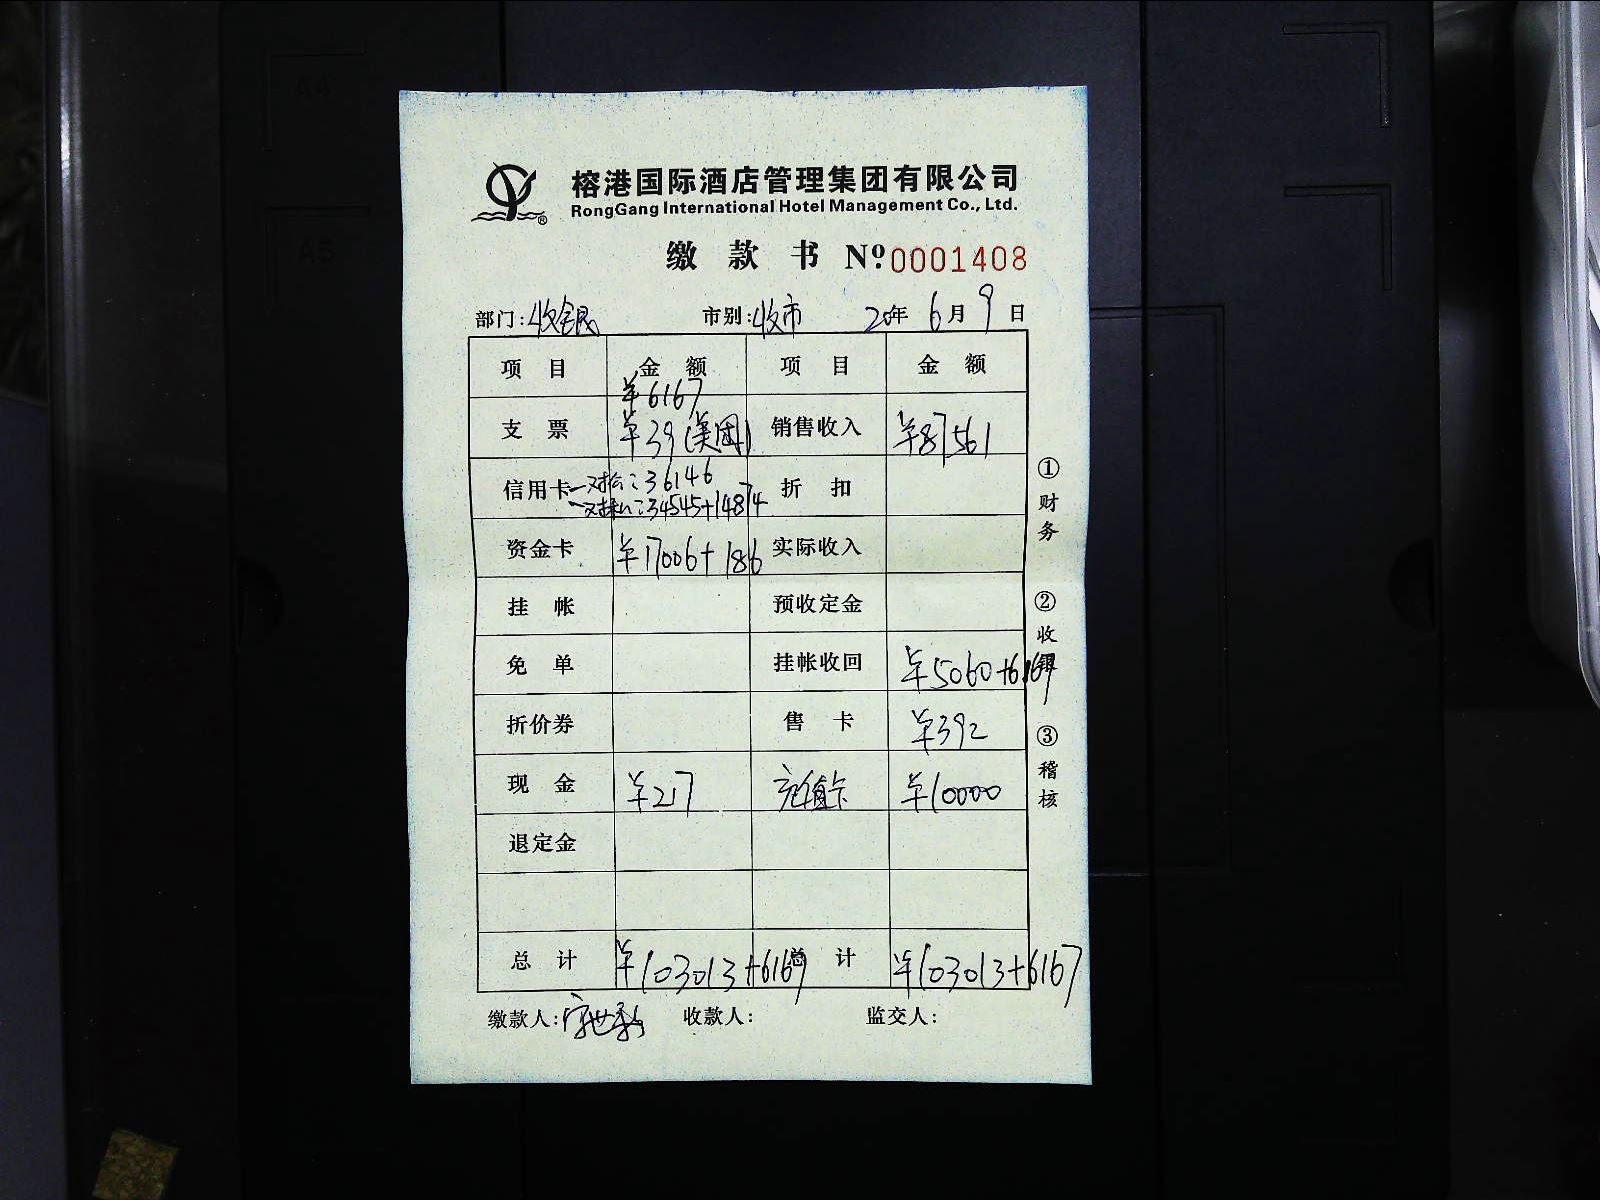 榕港国际酒店管理集团有限公司
RongGang International Hotel Management Co., Ltd.
缴 款 书 Nº 0001408
部门: 收银 市别: 收市 20年 6月 9日
项 目 金 额 项 目 金 额
¥6167
支 票 ¥39(美团) 销售收入 ¥87561
信用卡 一对公:36146 折 扣
34545+14874
资金卡 ¥17006+186 实际收入
挂 帐 预收定金
免 单 挂帐收回 ¥5060+6167
折价券 售 卡 ¥392
现 金 ¥217 充值卡 ¥10000
退定金
总 计 ¥103013+6167 总 计 ¥103013+6167
缴款人: 收款人: 监交人:
①财务
②收银
③稽核
A4
A5